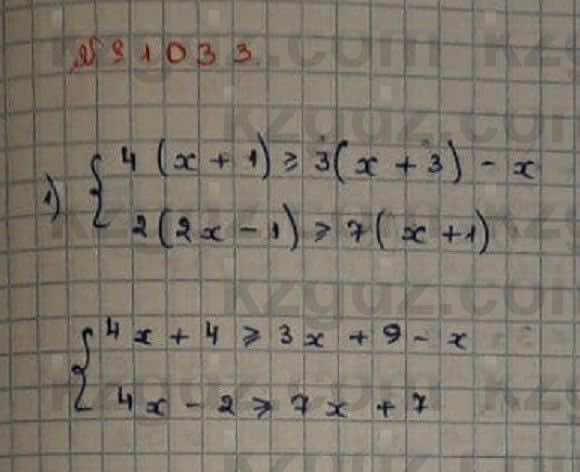 № 91033
1) { 4(x + 1) ≥ 3(x + 3) - x
2(2x - 1) ≥ 7(x + 1)
{ 4x + 4 ≥ 3x + 9 - x
4x - 2 ≥ 7x + 7
kzgdz.com kzgdz.com
kzgdz.com
kzgdz.com
kzgdz.com